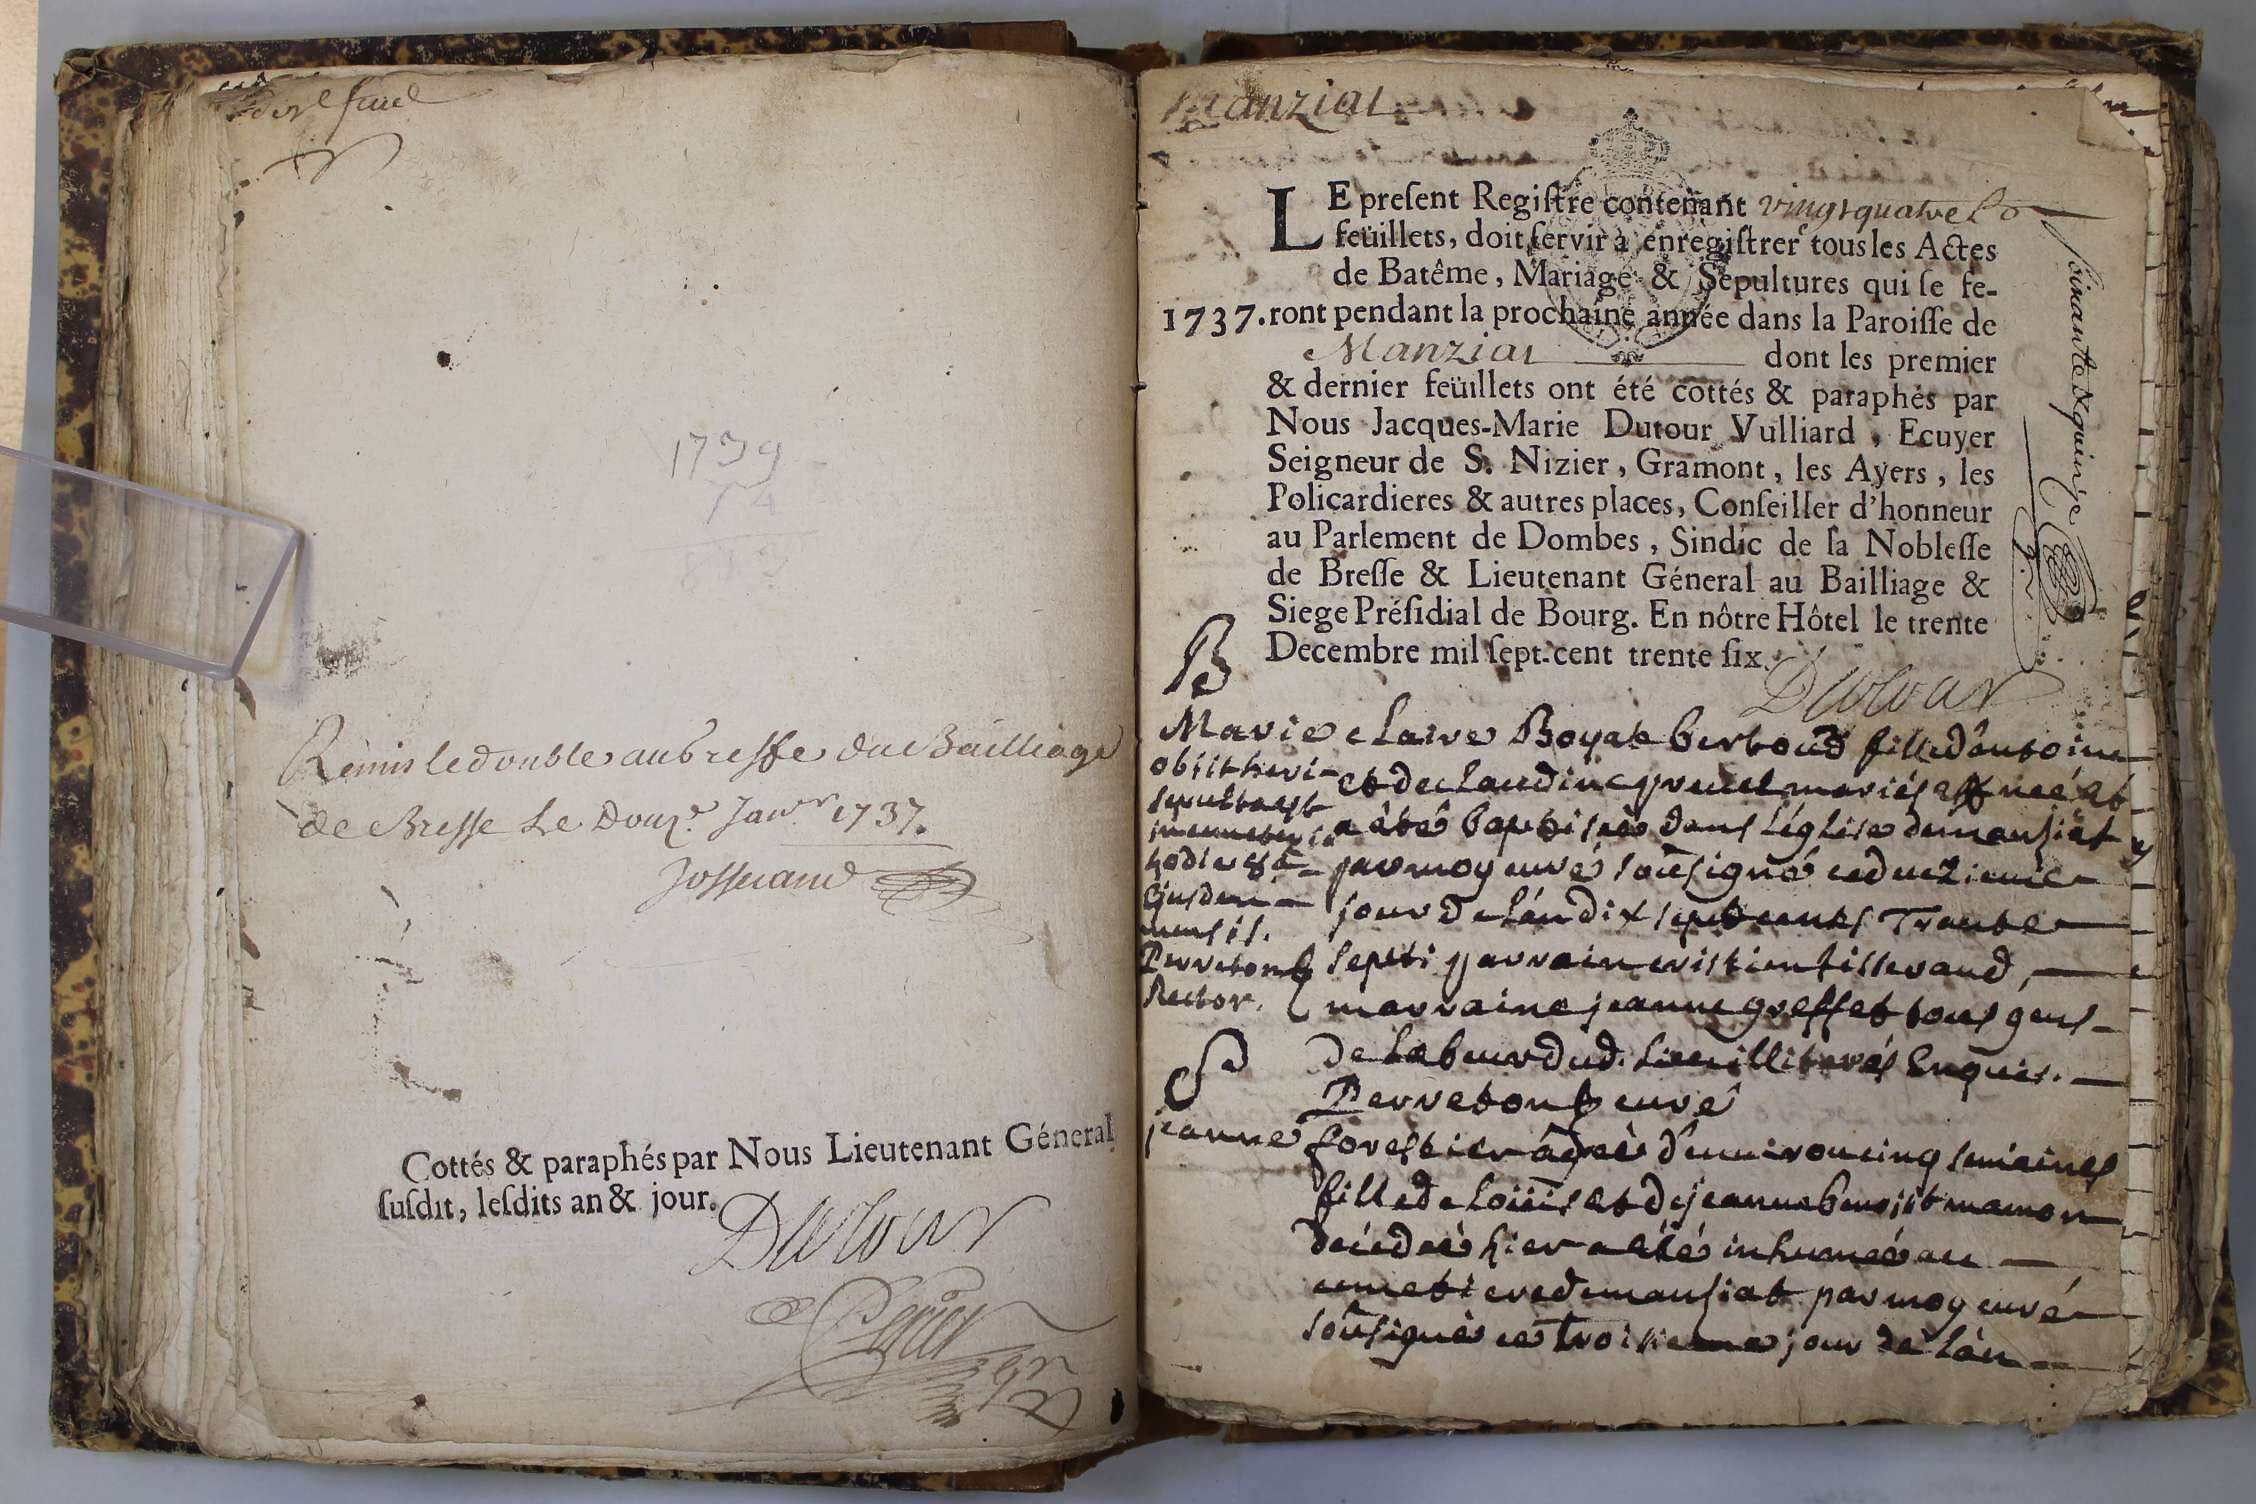 1739
14
Remis le double au Greffe du Bailliage
de Bresse Le Douz.e Janr 1737.
Josserand
Cottés & paraphés par Nous Lieutenant Géneral
ſuſdit, leſdits an & jour.
Dutour
Manziat
LE preſent Regiſtre contenant vingt quatre
feüillets, doit ſervir à enregiſtrer tous les Actes
de Batême, Mariage & Sépultures qui ſe fe-
1737. ront pendant la prochaine année dans la Paroiſſe de
Manziat dont les premier
& dernier feüillets ont été cottés & paraphés par
Nous Jacques-Marie Dutour Vulliard, Ecuyer
Seigneur de S. Nizier, Gramont, les Ayers, les
Policardieres & autres places, Conſeiller d'honneur
au Parlement de Dombes, Sindic de la Nobleſſe
de Breſſe & Lieutenant Géneral au Bailliage &
Siege Préſidial de Bourg. En nôtre Hôtel le trente
Decembre mil ſept-cent trente ſix.
Dutour
soixante & quinze
B
Marie claire Boyat berthoud fille d'antoine
et de claudine mariés est neé et
a été baptisée dans l'église de mansiat
par moy curé soûsigné ce
jour de l'an dix sept cents Trante
sept; parrain
marraine jeanne greffet tous gens
de labeur dud. lieu illiterés Enquis.
Perreton curé
obiit heri
sepulta est
in cemeterio
hodie
Ejusdem
mensis.
Perreton
Rector.
S
jeanne forestier âgée d'environ cinq semaines
fille de Loüis et de jeanne benoist
décedeé hier a été inhumeé au
cimetiere de mansiat par moy curé
soûsigné ce troisieme jour de l'an